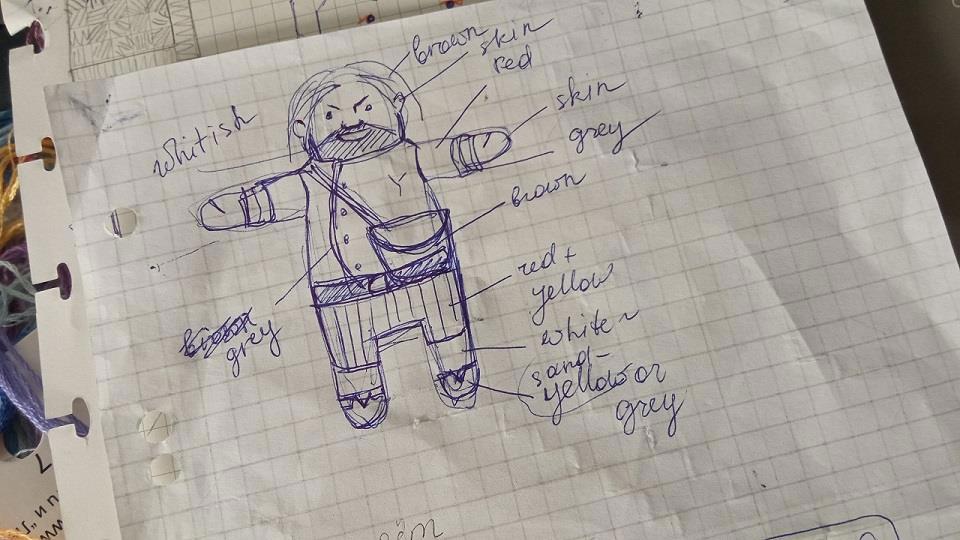 brown
skin
red
skin
grey
whitish
brown
red +
yellow
white
sand-
yellow or
grey
grey